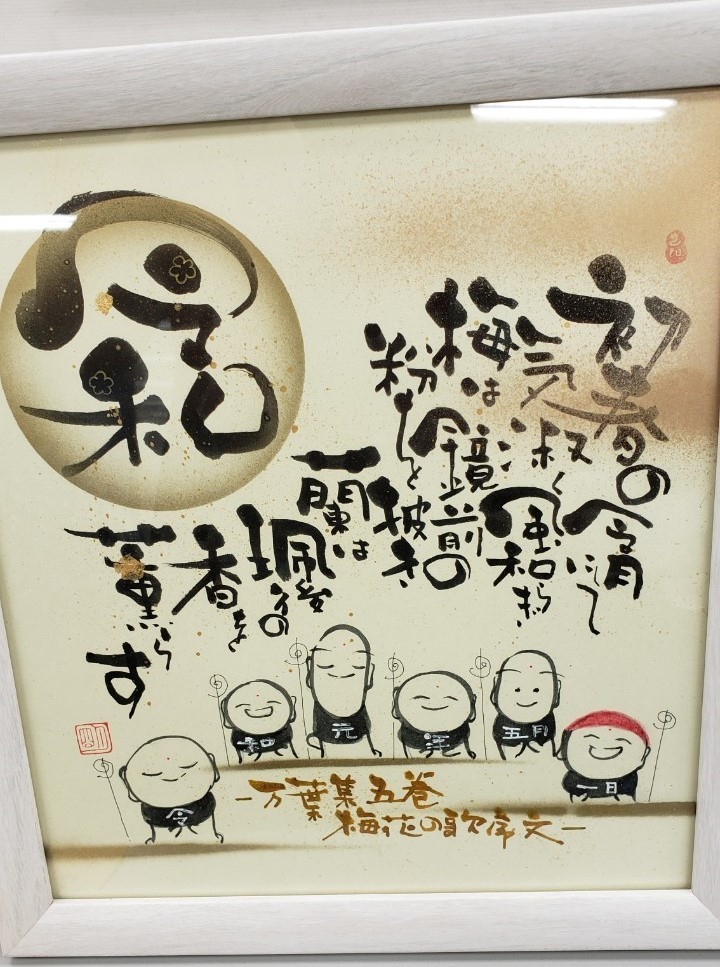 令和
初春の
令月にして
気淑く
風和らぎ
梅は
鏡前の
粉を
披き
蘭は
珮後の
香を
薫らす
令
和
元
年
五月
一日
-万葉集五巻
梅花の歌序文-